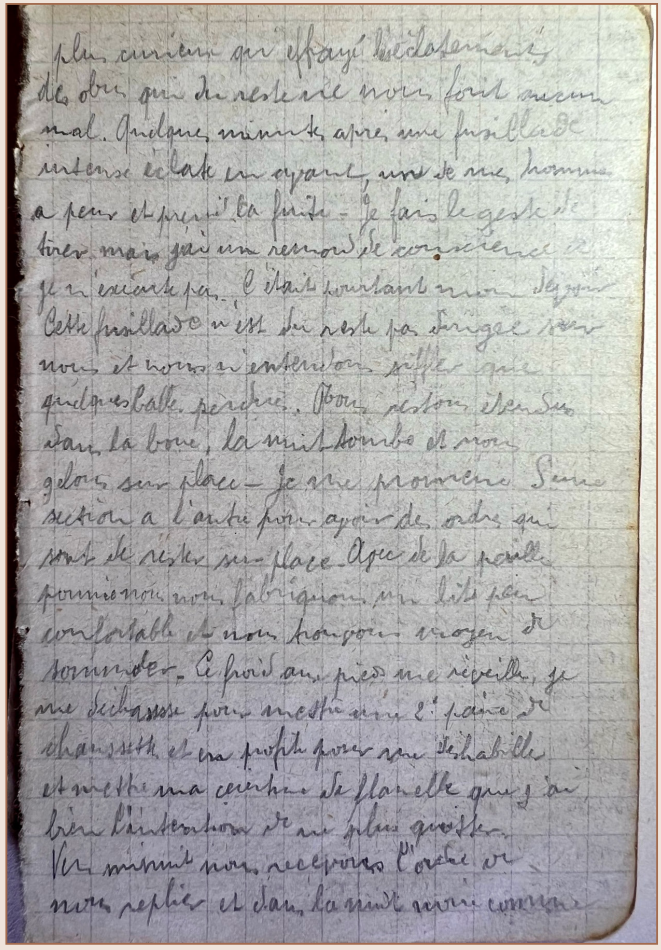 plus curieux qu'effrayé l'éclatements
des obus qui du reste ne nous font aucun
mal. Quelques minutes après une fusillade
intense éclate en avant, un de mes hommes
a peur et prend la fuite - Je fais le geste de
tirer mais j'ai un remord de conscience et
je n'execute pas. C'était pourtant mon devoir
Cette fusillade n'est du reste pas dirigée sur
nous et nous n'entendons siffler que
quelques balles perdues. Nous restons etendus
dans la boue, la nuit tombe et nous
gelons sur place - Je me promène d'une
section a l'autre pour avoir des ordres qui
sont de rester sur place. Avec de la paille
nous fabriquons un lits peu
confortable et nous trouvons moyen de
sommoler. Le froid aux pieds me réveille, je
me déchausse pour mettre une 2e paire de
chaussette et en profite pour me déshabiller
et mettre ma ceinture de flanelle que j'ai
bien l'intention de ne plus quitter.
Vers minuit nous recevons l'ordre de
nous replier et dans la nuit noire comme